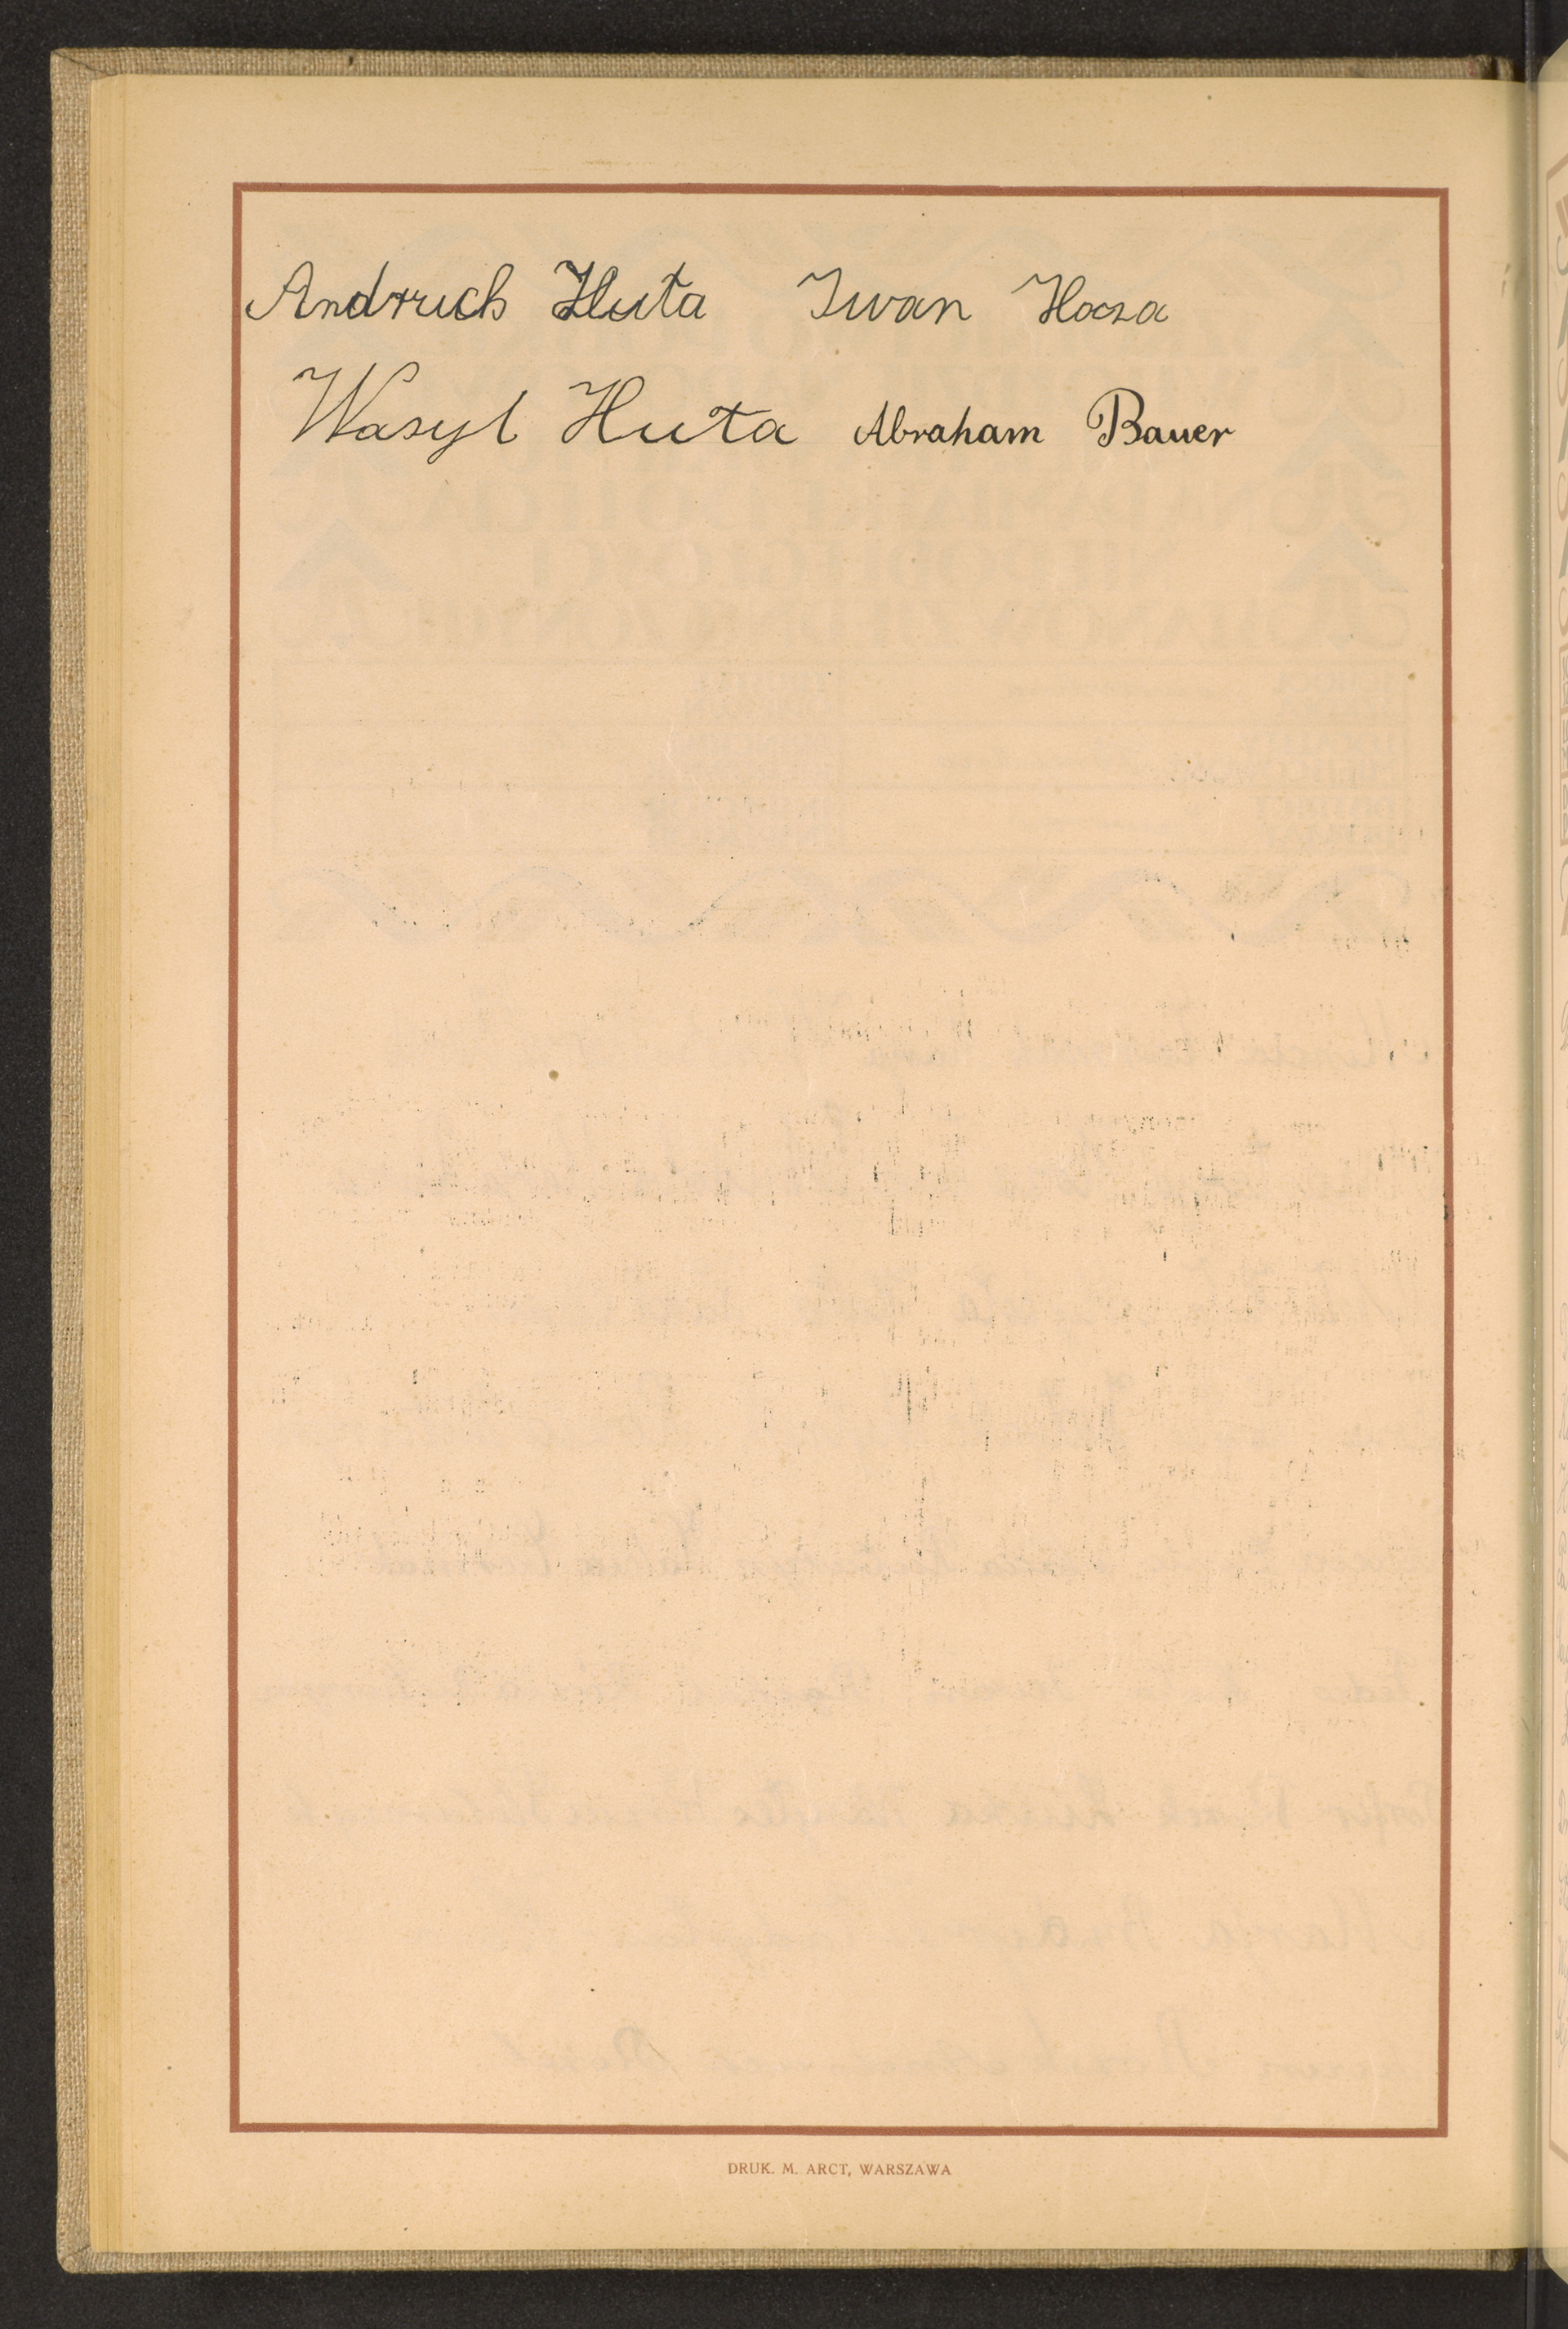 Andruch Huta Iwan Hoza
Wasyl Huta Abraham Bauer
DRUK. M. ARCT, WARSZAWA